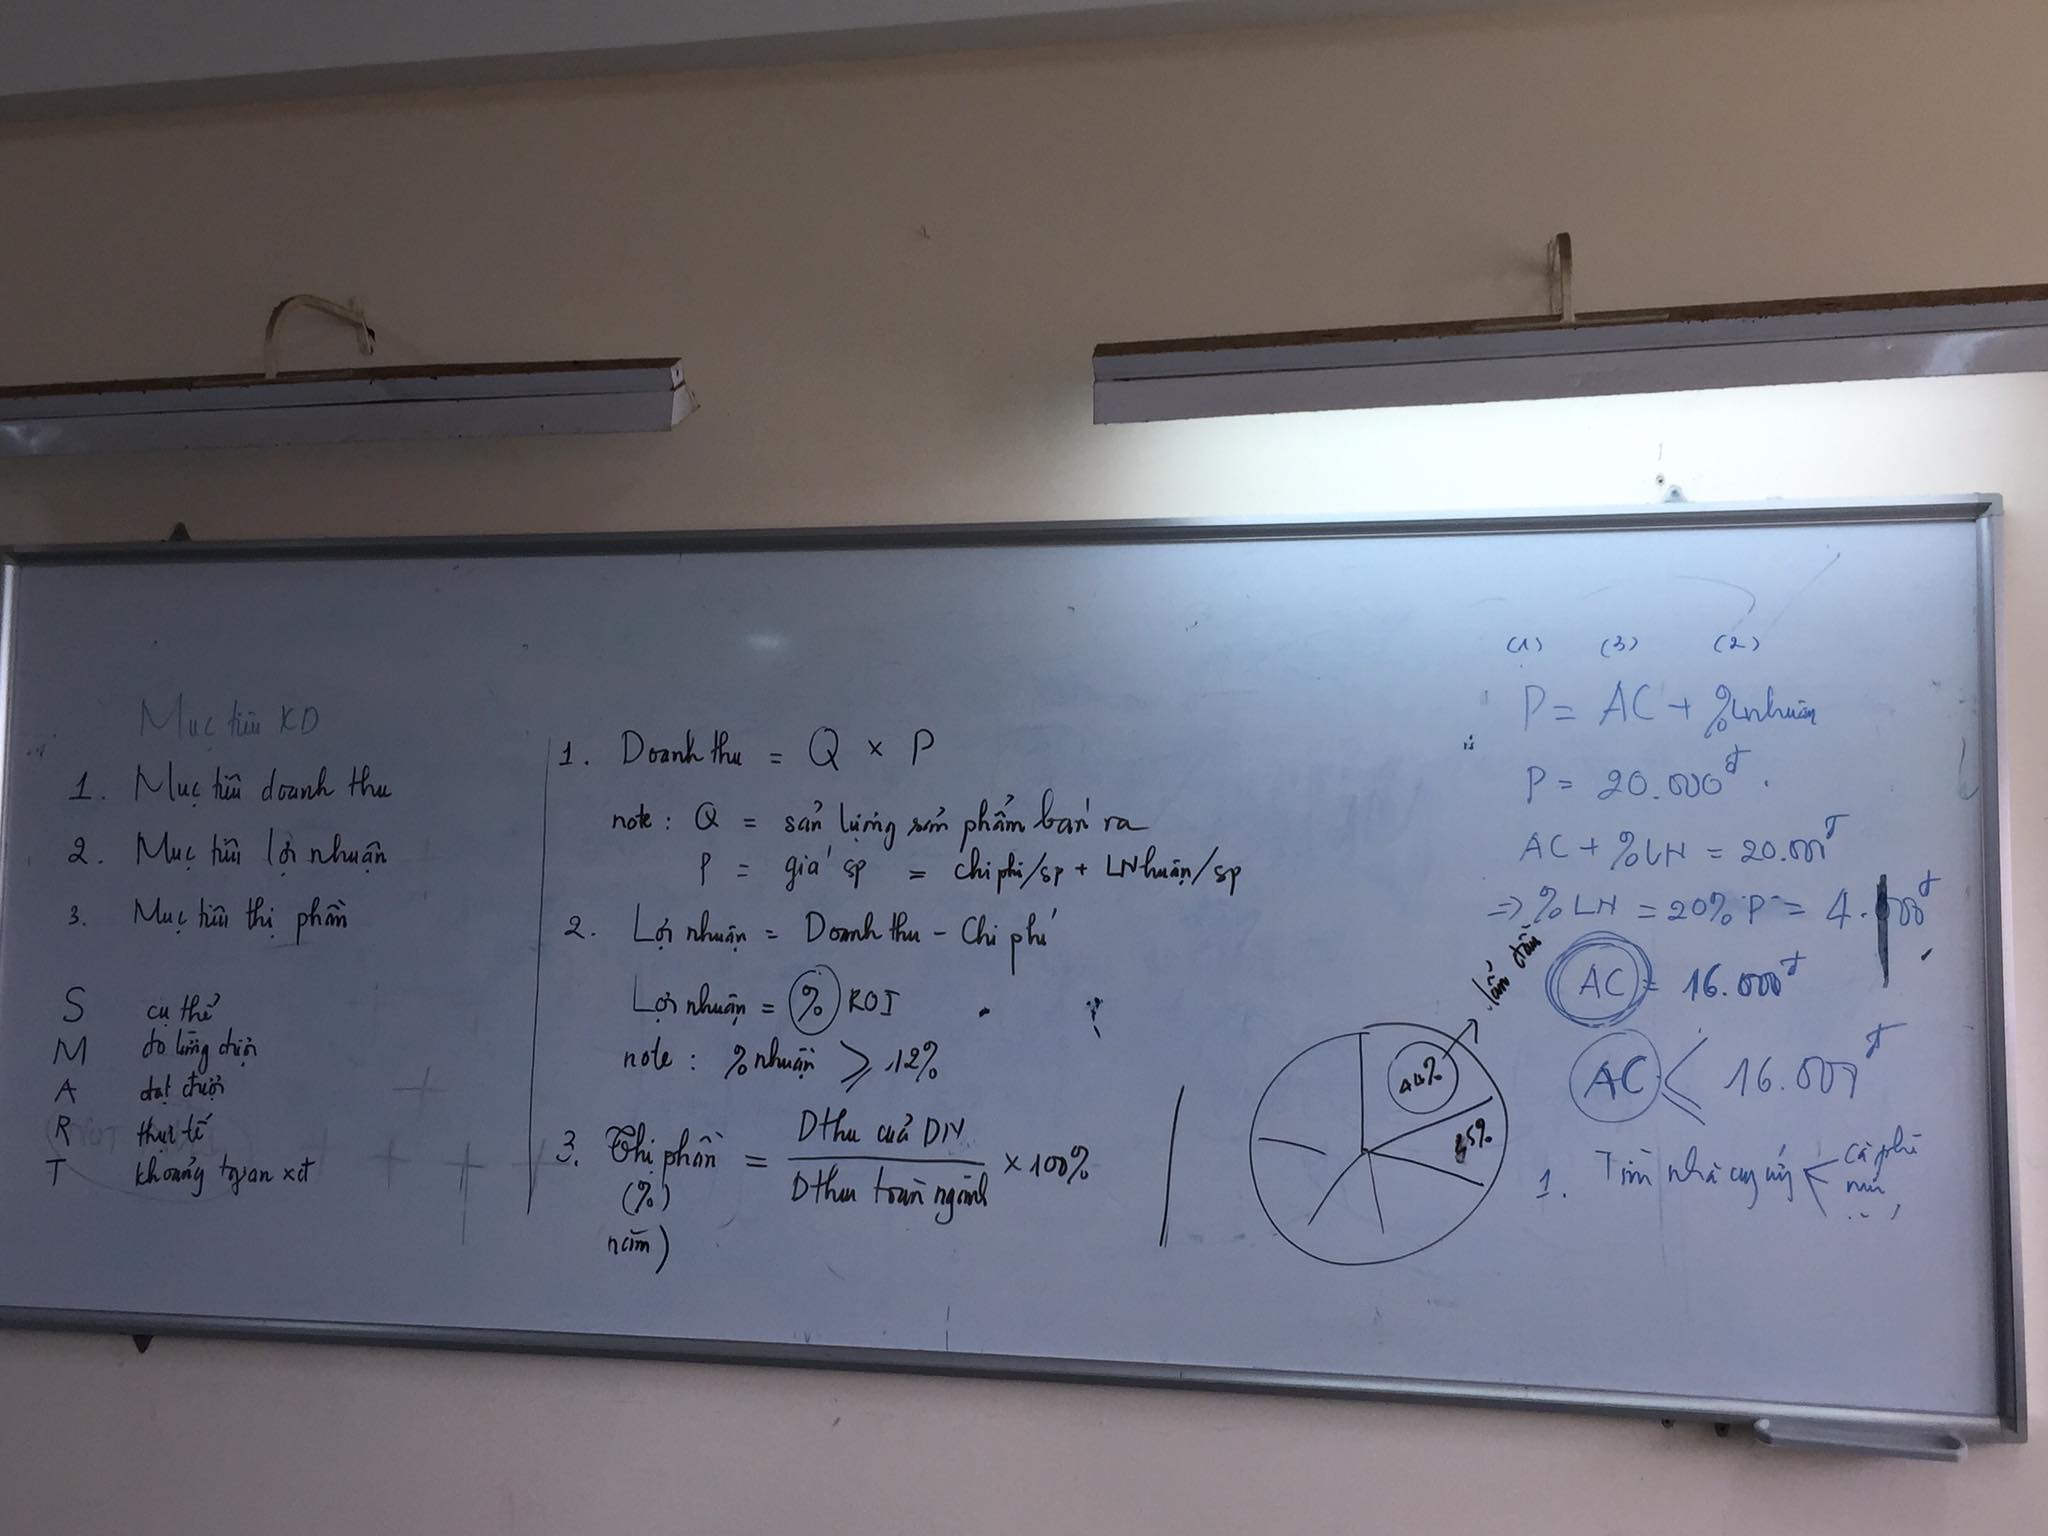 Mục tiêu KD
1. Mục tiêu doanh thu
2. Mục tiêu lợi nhuận
3. Mục tiêu thị phần
S cụ thể
M đo lường được
A đạt được
R thực tế
T khoảng tgian xđ
1. Doanh thu = Q × P
note: Q = sản lượng sản phẩm bán ra
P = giá sp = chi phí/sp + LNhuận/sp
2. Lợi nhuận = Doanh thu - Chi phí
Lợi nhuận = % ROI
note: % nhuận ≥ 12%
3. Thị phần (%) năm) = Dthu của DN / Dthu toàn ngành × 100%
dẫn đầu
15%
(1) (3) (2)
P = AC + % LNhuận
P = 20.000đ
AC + % LN = 20.000đ
=> % LN = 20% P = 4.000đ
AC = 16.000đ
AC < 16.000đ
1. Tìm nhà cung ứng
cà phê